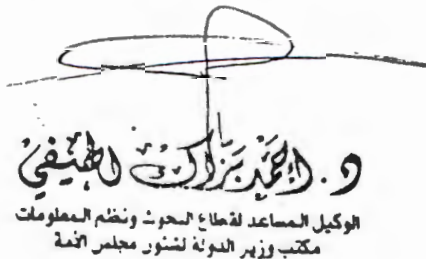 د. أحمد براك الهيفي
الوكيل المساعد لقطاع البحوث ونظم المعلومات
مكتب وزير الدولة لشئون مجلس الأمة